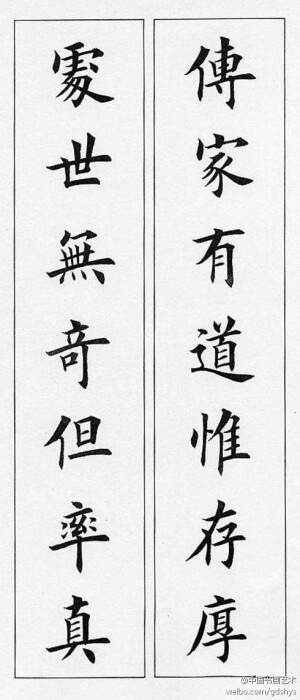 傳家有道惟存厚
處世無奇但率真
@中国书画艺术
weibo.com/gdshys